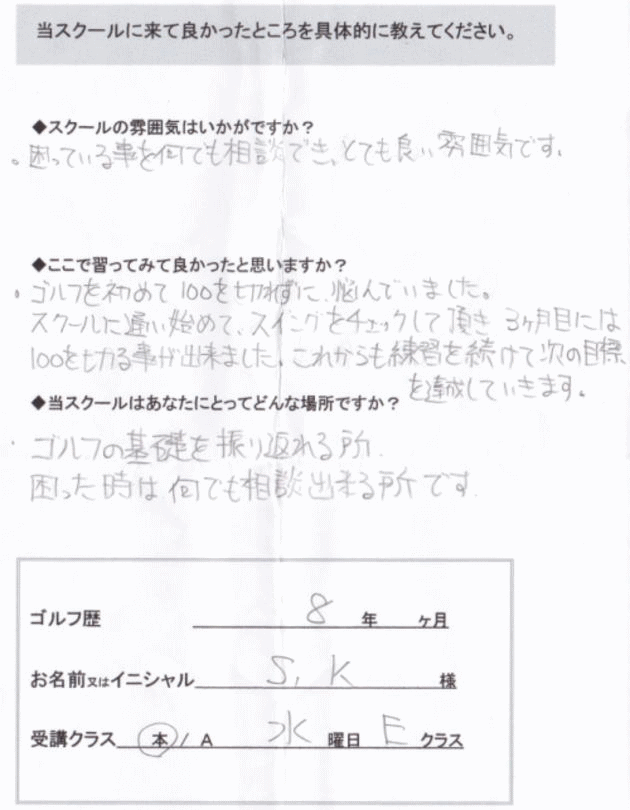 当スクールに来て良かったところを具体的に教えてください。
◆スクールの雰囲気はいかがですか？
。困っている事を何でも相談でき、とても良い雰囲気です。
◆ここで習ってみて良かったと思いますか？
・ゴルフを初めて100を切れずに、悩んでいました。
スクールに通い始めて、スイングをチェックして頂き3ヶ月目には
100を切る事が出来ました。これからも練習を続けて次の目標
を達成していきます。
◆当スクールはあなたにとってどんな場所ですか？
・ゴルフの基礎を振り返れる所.
困った時は何でも相談出来る所です.
ゴルフ歴 8 年 ヶ月
お名前又はイニシャル S.K 様
受講クラス 本 / A 水 曜日 E クラス